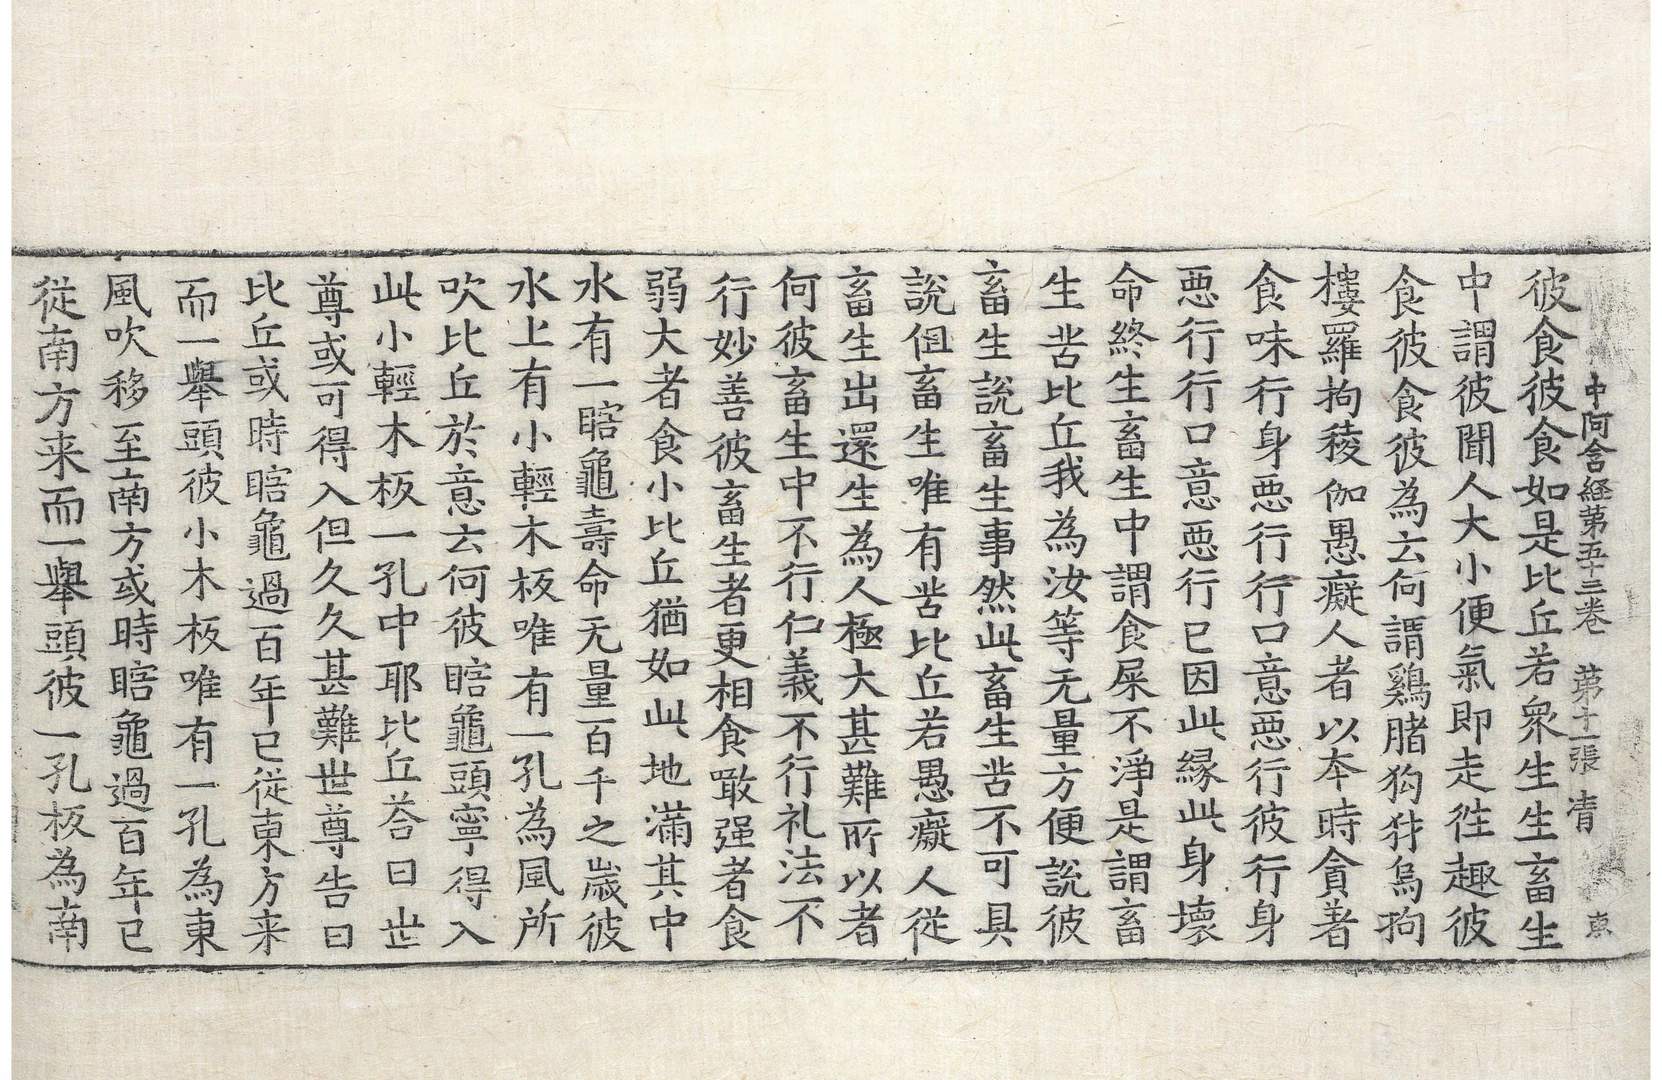 中阿含経苐五十三卷 苐十一張 凊 東
彼食彼食如是比丘若衆生生畜生
中謂彼聞人大小便氣即走徃趣彼
食彼食彼為云何謂鷄豬狗犲烏拘
樓羅拘稜伽愚癡人者以夲時貪著
食味行身悪行行口意悪行彼行身
悪行行口意悪行已因此縁此身壞
命終生畜生中謂食屎不淨是謂畜
生苦比丘我為汝等无量方便説彼
畜生説畜生事然此畜生苦不可具
說但畜生唯有苦比丘若愚癡人従
畜生出還生為人極大甚難所以者
何彼畜生中不行仁義不行礼法不
行妙善彼畜生者更相食噉强者食
弱大者食小比丘猶如此地滿其中
水有一瞎龜壽命无量百千之歲彼
水上有小輕木板唯有一孔為風所
吹比丘於意云何彼瞎龜頭寧得入
此小輕木板一孔中耶比丘荅曰世
尊或可得入但久久甚難世尊告曰
比丘或時瞎龜過百年已従東方来
而一舉頭彼小木板唯有一孔為東
風吹移至南方或時瞎龜過百年已
従南方来而一舉頭彼一孔板為南